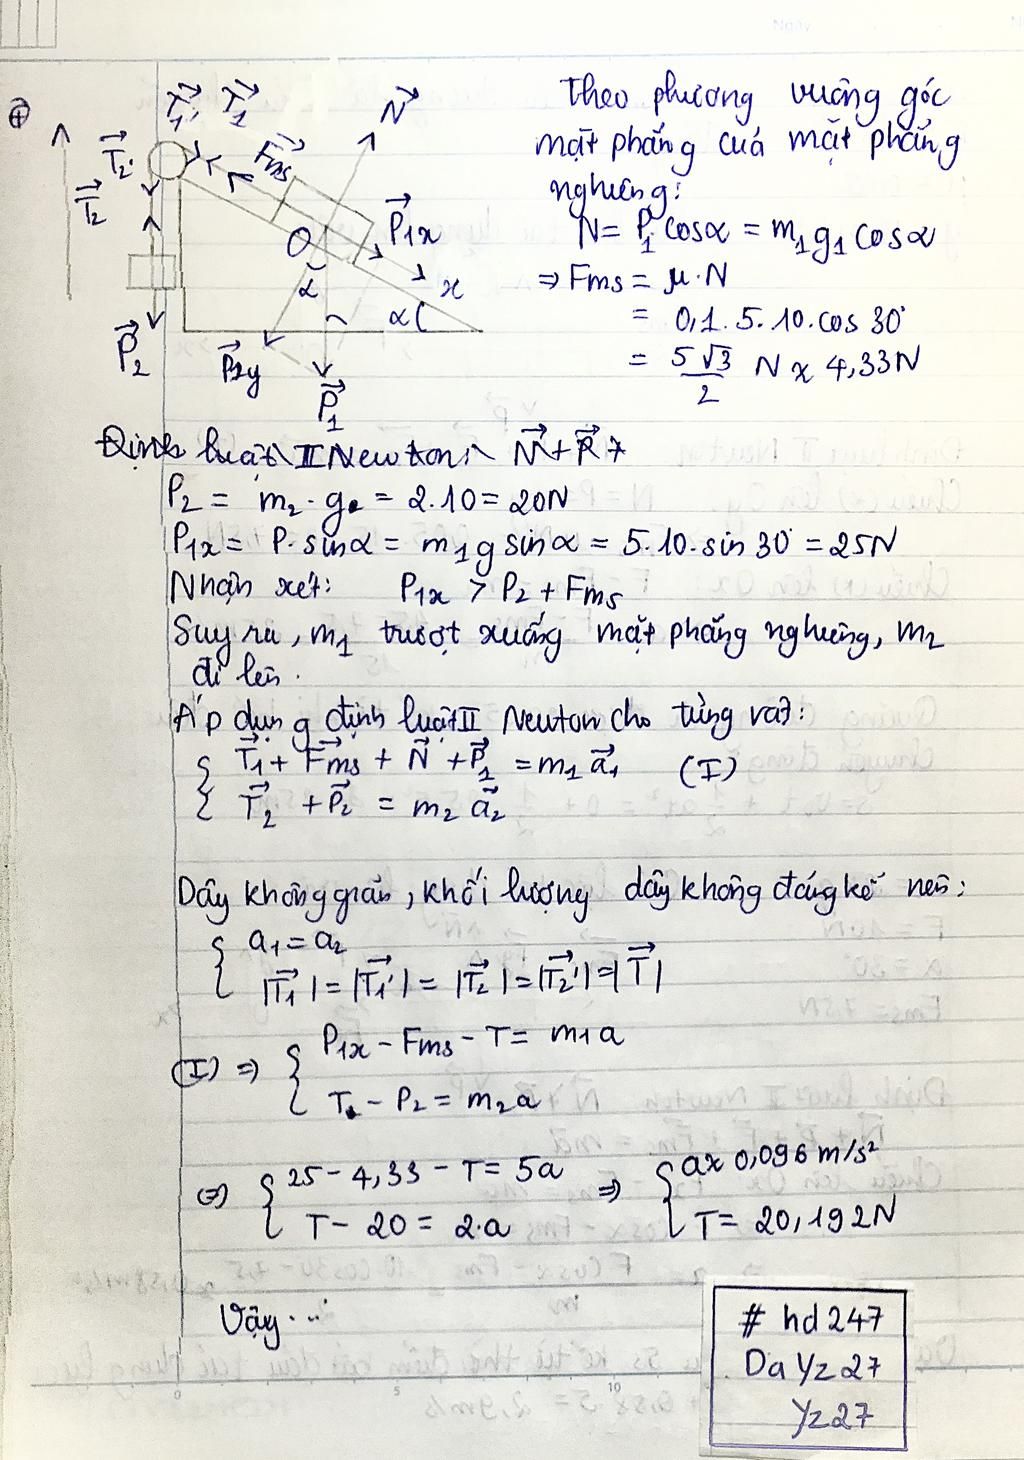 Theo phương vuông góc
mặt phẳng của mặt phẳng
nghiêng:
N = P₁ cosα = m₁g₁cosα
⇒ Fms = μ·N
= 0,1. 5. 10. cos 30°
= 5√3/2 N ≈ 4,33N
⊕
T₁'→ T₁→ N→
T₂'→ Fms→
T₂→ P₁x→
O
α x
α
P₂→ P₂y→
P₁→
Định luật II Newton: N→ + P→ +
P₂ = m₂.g = 2.10 = 20N
P₁x = P.sinα = m₁g sinα = 5.10.sin 30° = 25N
Nhận xét: P₁x > P₂ + Fms
Suy ra, m₁ trượt xuống mặt phẳng nghiêng, m₂
đi lên.
Áp dụng định luật II Newton cho từng vật:
{ T₁→ + Fms→ + N→ + P₁→ = m₁a₁→ (I)
{ T₂→ + P₂→ = m₂a₂→
Dây không giãn, khối lượng dây không đáng kể nên:
{ a₁ = a₂
{ |T₁→| = |T₁'→| = |T₂→| = |T₂'→| = |T→|
(I) ⇒ { P₁x - Fms - T = m₁a
{ T - P₂ = m₂a
⇔ { 25 - 4,33 - T = 5a ⇒ { a ≈ 0,096 m/s²
{ T - 20 = 2.a { T = 20,192N
Vậy...
# hd247
DaYz27
Yz27
0 5 10